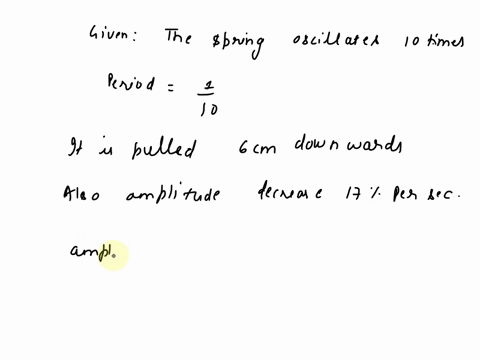 Given: The spring oscillates 10 times
Period = 1/10
It is pulled 6cm downwards
Also amplitude decrease 17% per sec.
ampl